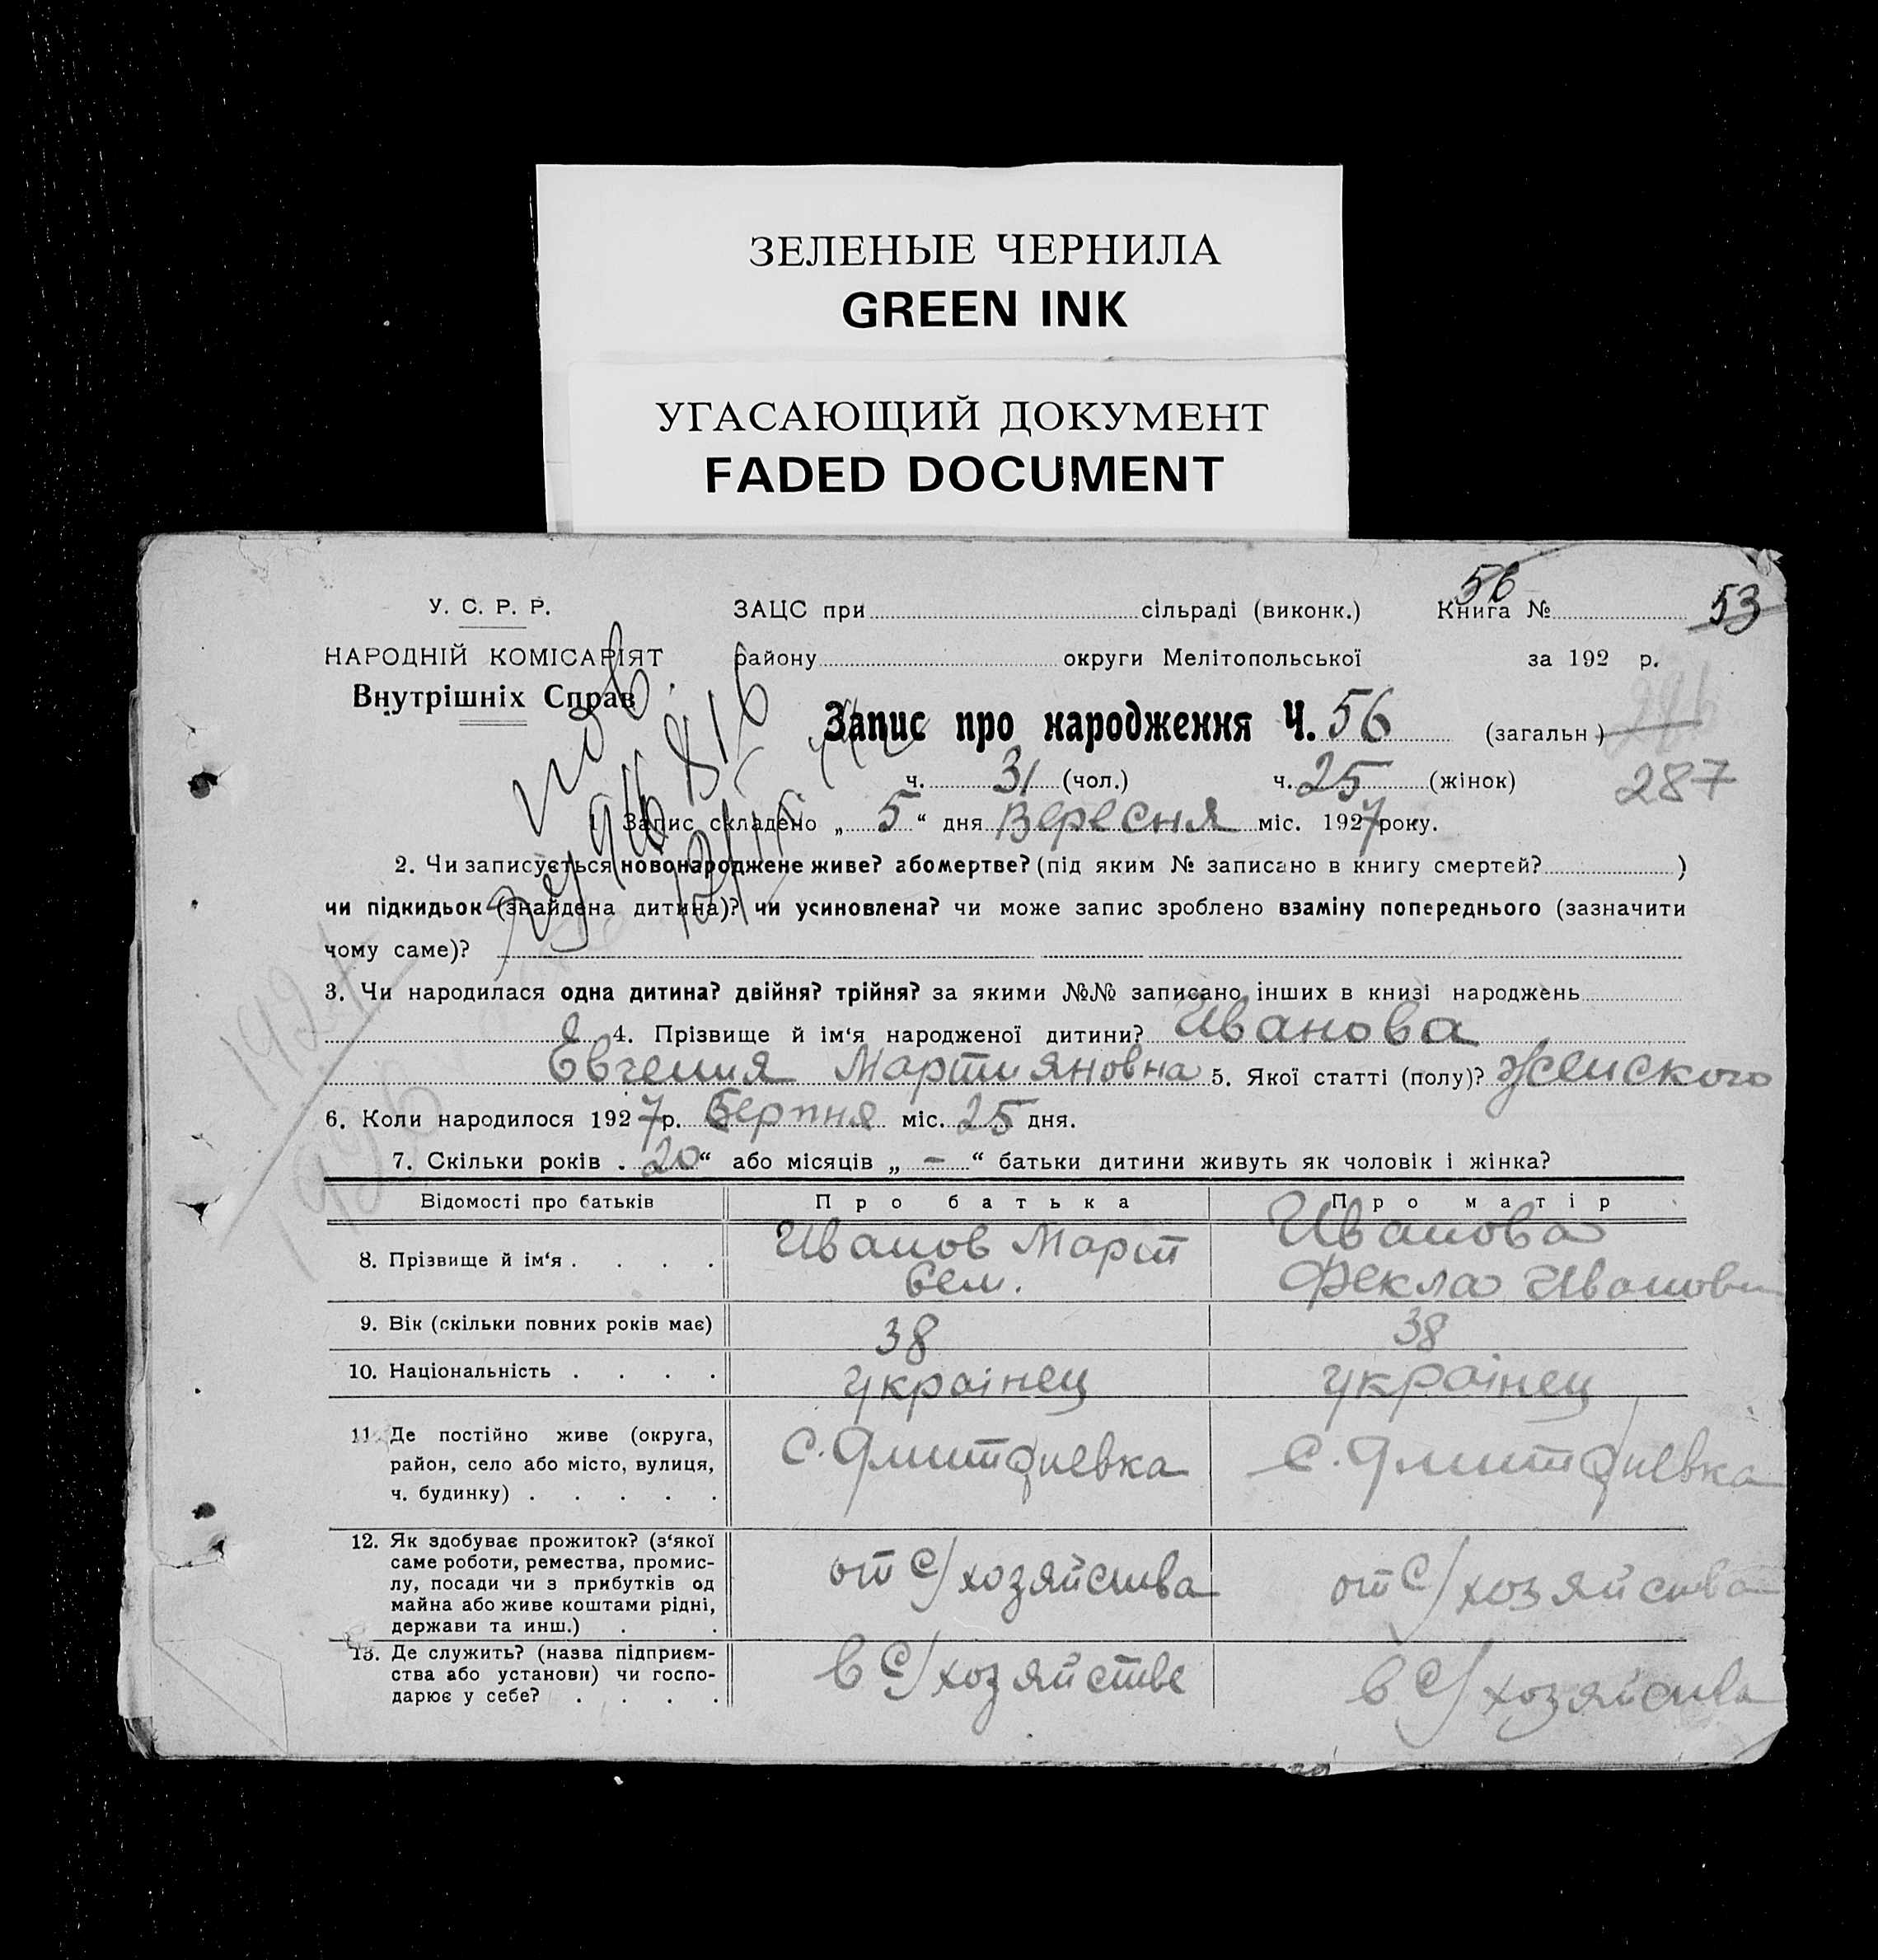 ЗЕЛЕНЫЕ ЧЕРНИЛА
GREEN INK
УГАСАЮЩИЙ ДОКУМЕНТ
FADED DOCUMENT
56
53
У. С. Р. Р.
ЗАЦС при сільраді (виконк.) Книга №
НАРОДНІЙ КОМІСАРІЯТ
району округи Мелітопольської за 192 р.
Внутрішніх Справ
Запис про народження Ч. 56 (загальн)
286
ч. 31 (чол.) ч. 25 (жінок)
287
1. Запис складено „ 5 “ дня Вересня міс. 1927 року.
2. Чи записується новонароджене живе? або мертве? (під яким № записано в книгу смертей? )
чи підкидьок (знайдена дитина)? чи усиновлена? чи може запис зроблено взаміну попереднього (зазначити
чому саме)?
3. Чи народилася одна дитина? двійня? трійня? за якими №№ записано інших в книзі народжень
4. Прізвище й ім‘я народженої дитини? Иванова
Евгения Мартияновна 5. Якої статті (полу)? Женского
6. Коли народилося 1927 р. Серпня міс. 25 дня.
7. Скільки років „ 20 “ або місяців „ – “ батьки дитини живуть як чоловік і жінка?
1927
Відомості про батьків Про батька Про матір
8. Прізвище й ім‘я . . . . Иванов Март Сем. Иванова Фекла Ивановн
9. Вік (скільки повних років має) 38 38
10. Національність . . . . українец українец
11. Де постійно живе (округа,
район, село або місто, вулиця,
ч. будинку) . . . . .
с. Дмитриевка с. Дмитриевка
12. Як здобуває прожиток? (з‘якої
саме роботи, ремества, промис-
лу, посади чи з прибутків од
майна або живе коштами рідні,
держави та инш.) . .
от с/хозяйства от с/хозяйства
13. Де служить? (назва підприєм-
ства або установи) чи госпо-
дарює у себе? . . . .
в с/хозяйстве в с/хозяйства